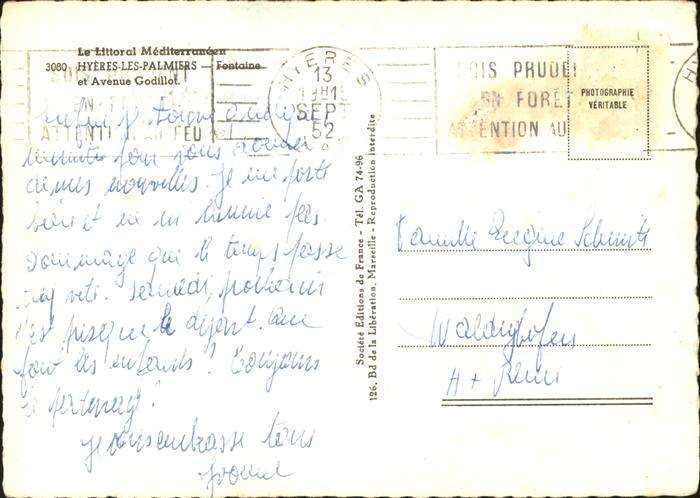 Le Littoral Méditerranéen
3080 HYÈRES-LES-PALMIERS — Fontaine
et Avenue Godillot.
HYERES
13
SEP
52
SOIS PRUDENT
EN FORÊT
ATTENTION AU
ATTENTION AU FEU
PHOTOGRAPHIE
VÉRITABLE
Enfin je
minute pour vous donner
de mes nouvelles. Je me porte
bien et
Dommage que le temps passe
vite. Samedi prochain
c'est presque le départ. Que
font les enfants ? Toujours
Je vous embrasse tous
Yvonne
Société Éditions de France - Tél. GA 74-96
126, Bd de la Libération, Marseille - Reproduction interdite
Famille Eugène Schmitt
Waldighofen
Ht Rhin